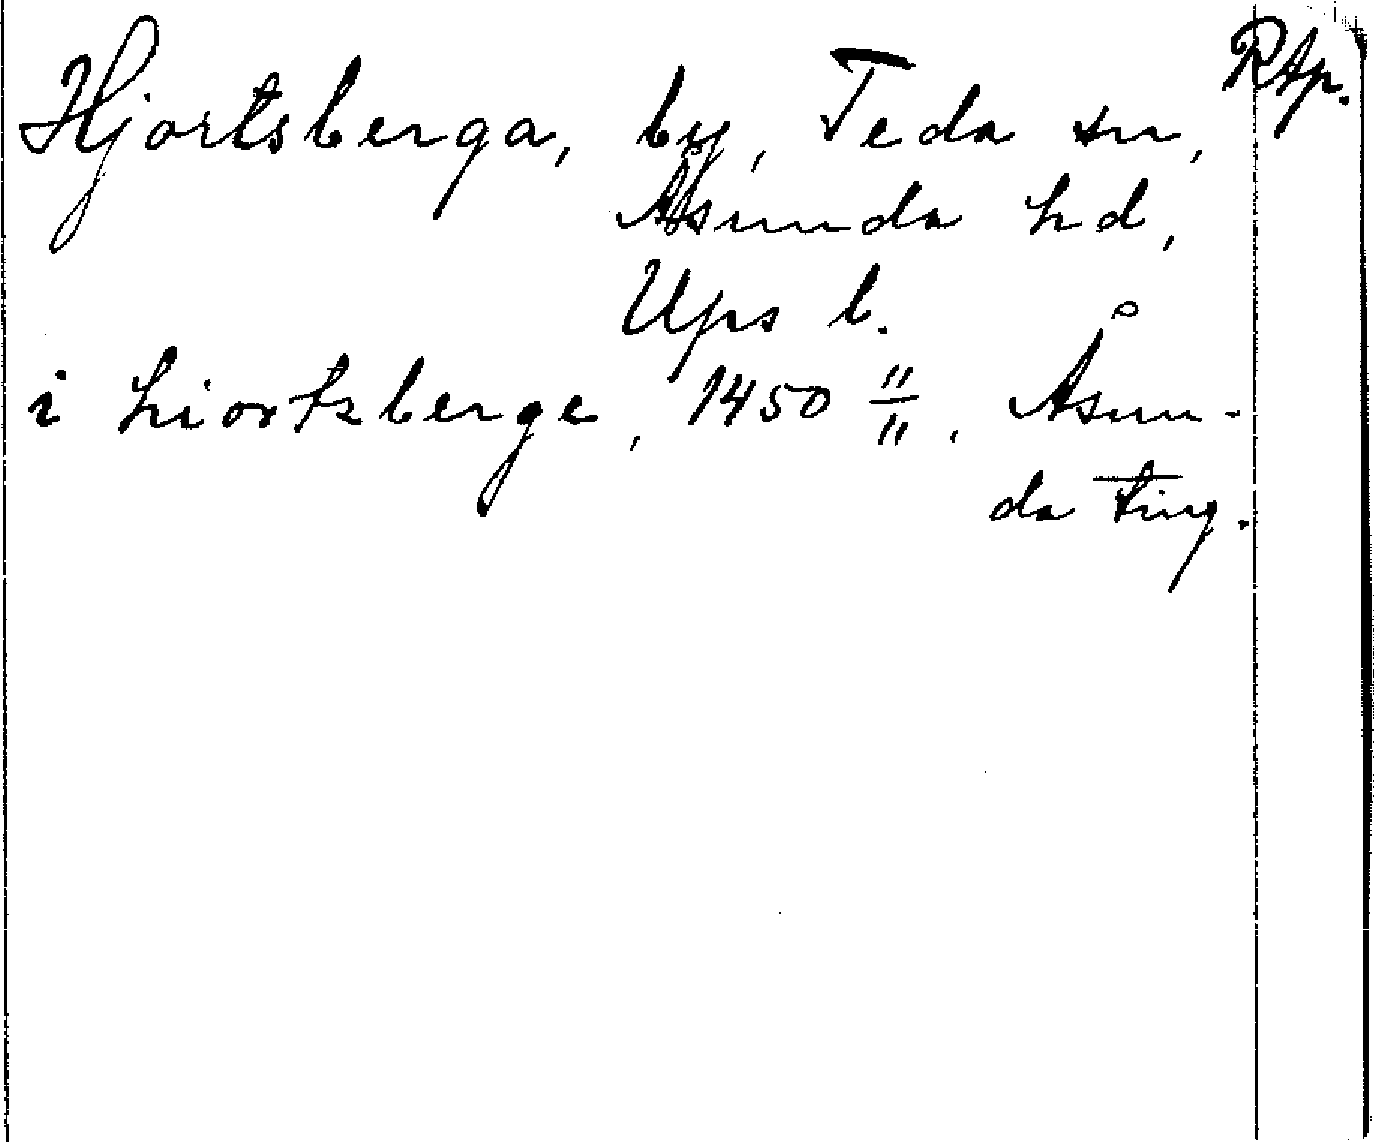 Rtp.
Hjortsberga, by, Teda sn,
Åsunda hd,
Ups l.
i hiortzberge, 1450 11/11, Åsun-
da ting.